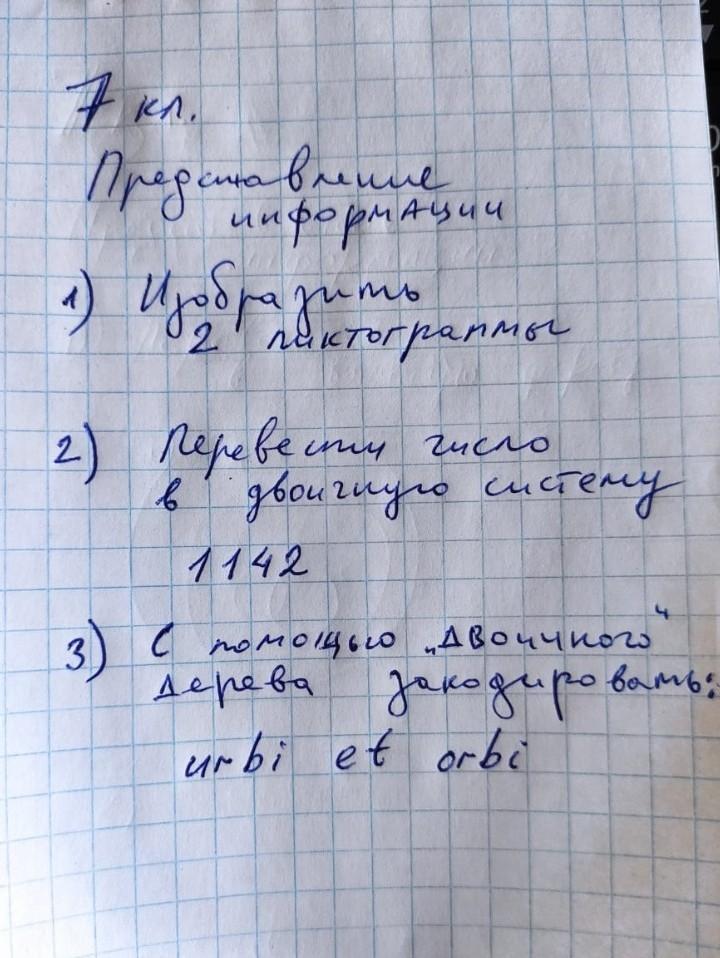 7 кл.
Представление
информации
1) Изобразить
2 пиктограммы
2) Перевести число
в двоичную систему
1142
3) С помощью „двоичного“
дерева закодировать:
urbi et orbi